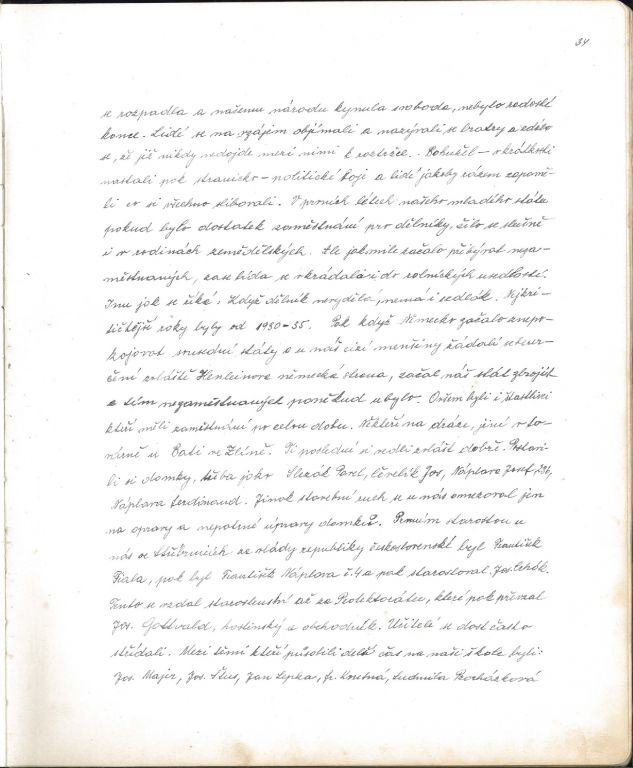 34
se rozpadla a našemu národu kynula svoboda, nebylo radosti
konce. Lidé se na vzájem objímali a nazývali se bratry a zdálo
se, že již nikdy nedojde mezi nimi k roztržce. Bohužel – v krátkosti
nastali pak stranicko – politické boje a lidé jakoby rázem zapomě-
li co si všechno slibovali. V prvních létech našeho mladého státu
pokud bylo dostatek zaměstnání pro dělníky, žilo se slušně
i v rodinách zemědělských. Ale jakmile začalo přibývat neza-
městnaných, zase bída se vkrádala i do rolnických usedlostí.
Inu jak se říká: Když dělník nevydělá, nemá i sedlák. Nejkri-
tičtější roky byly od 1930–35. Pak když Německo začalo znepo-
kojovat sousední státy a u nás cizí menšiny žádali sebeur-
čení zvláště Henleinova německá strana, začal náš stát zbrojit
a tím nezaměstnaných poněkud ubylo. Ovšem byli i šťastlivci
kteří měli zaměstnání po celou dobu. Někteří na dráze, jiní v to-
várně u Bati ve Zlíně. Ti poslední si vedli zvlášť dobře. Postavi-
li si domky, třeba jako Slezák Pavel, Červelík Jos, Náplava Josef
Náplava Ferdinand. Jinak stavební ruch se u nás omezoval jen
na opravy a nepatrné úpravy domků. Prvním starostou u
nás ve Stříbrnicích za vlády republiky československé byl František
Fiala, pak byl František Náplava č.4 a pak starostoval Jos.
Tento se vzdal starostenství až za Protektorátu, které pak převzal
Jos. Gottvald, hostinský a obchodník. Učitelé se dost často
střídali. Mezi těmi kteří působili delší čas na naší škole byli:
Jos. Majer, Jos. Šus, Jan Lepka, fr. Ludmila Procházková